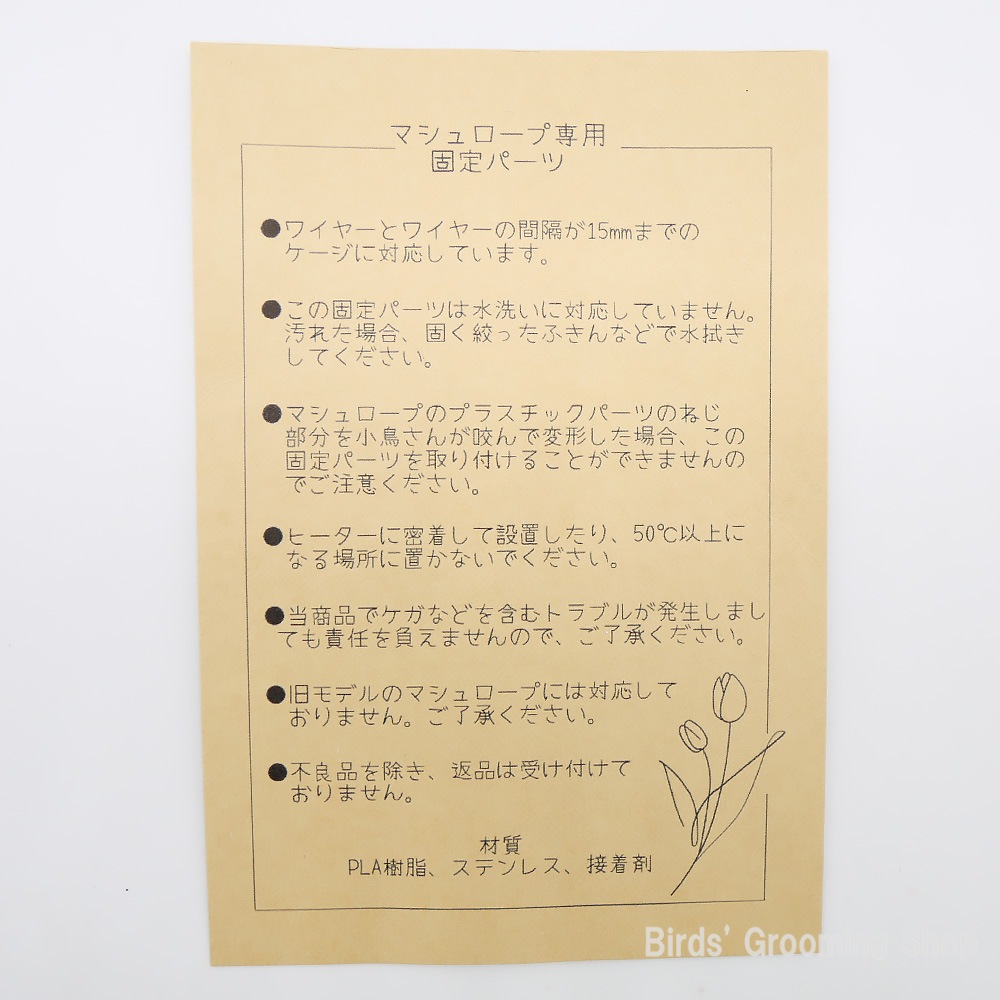 マシュロープ専用
固定パーツ
●ワイヤーとワイヤーの間隔が15mmまでの
ケージに対応しています。
●この固定パーツは水洗いに対応していません。
汚れた場合、固く絞ったふきんなどで水拭き
してください。
●マシュロープのプラスチックパーツのねじ
部分を小鳥さんが咬んで変形した場合、この
固定パーツを取り付けることができませんの
でご注意ください。
●ヒーターに密着して設置したり、50℃以上に
なる場所に置かないでください。
●当商品でケガなどを含むトラブルが発生しまし
ても責任を負えませんので、ご了承ください。
●旧モデルのマシュロープには対応して
おりません。ご了承ください。
●不良品を除き、返品は受け付けて
おりません。
材質
PLA樹脂、ステンレス、接着剤
Birds' Grooming Shop